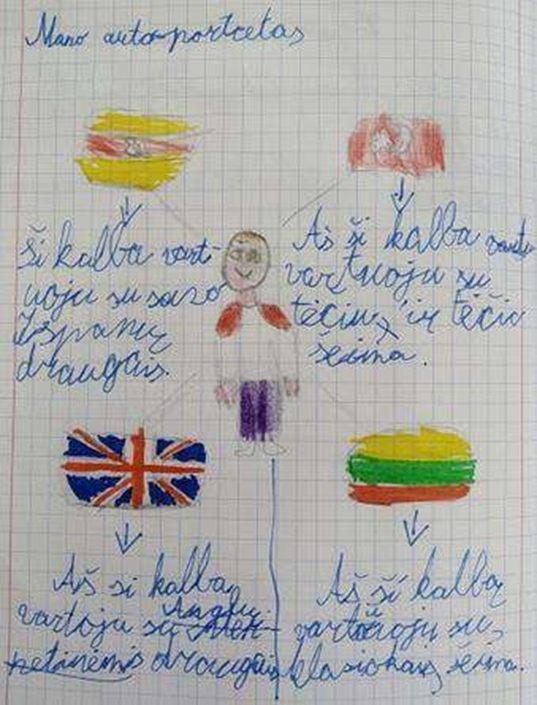 Mano auto-portretas
Ši kalba vart-
uoju su savo
Ispanų
draugais.
Aš ši kalba
vartuoju su
tėčiu ir tėčio
šeima.
Aš si kalba
vartoju su Anglų
draugais
Aš ši kalbą
vartoju su
klasiokais, šeima.